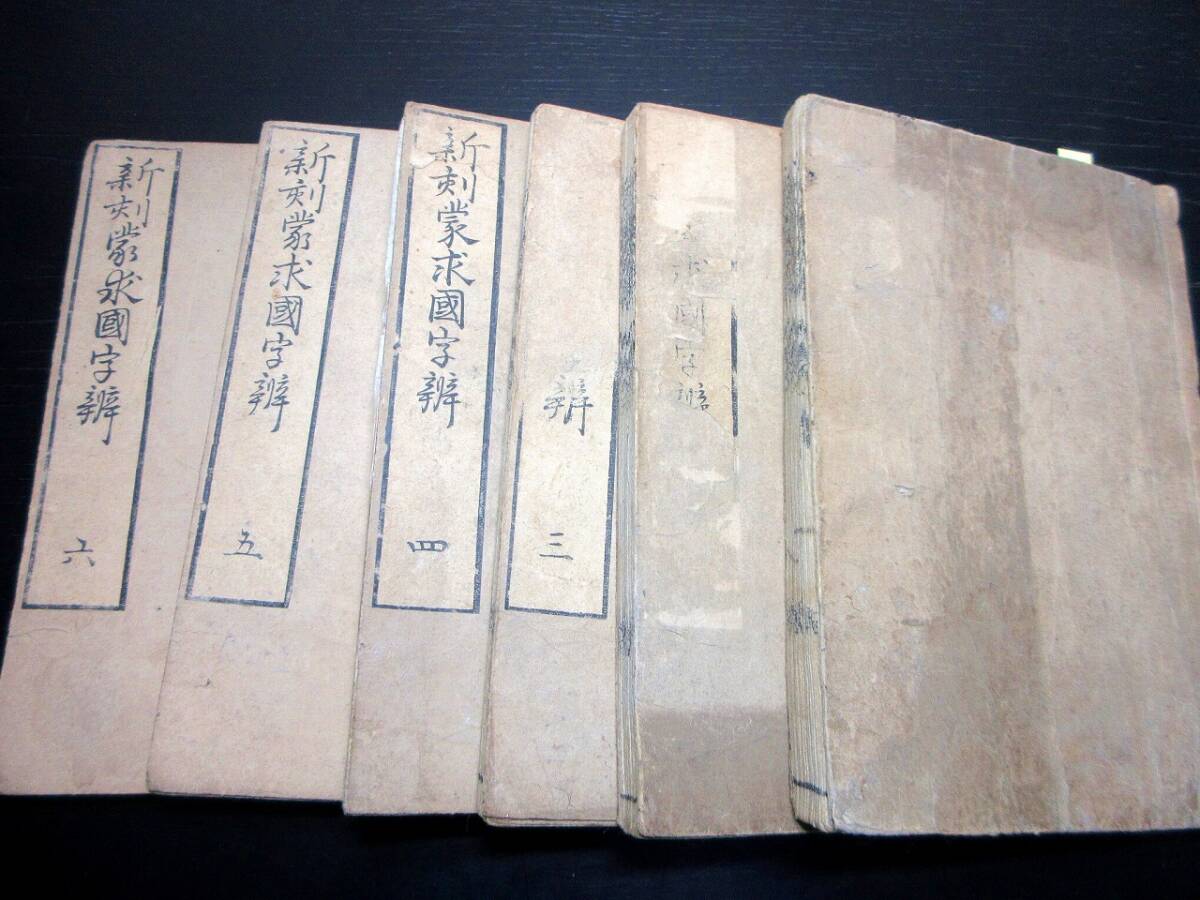 新刻蒙求國字辨
六
新刻蒙求國字辨
五
新刻蒙求國字辨
四
辨
三
求國字辨